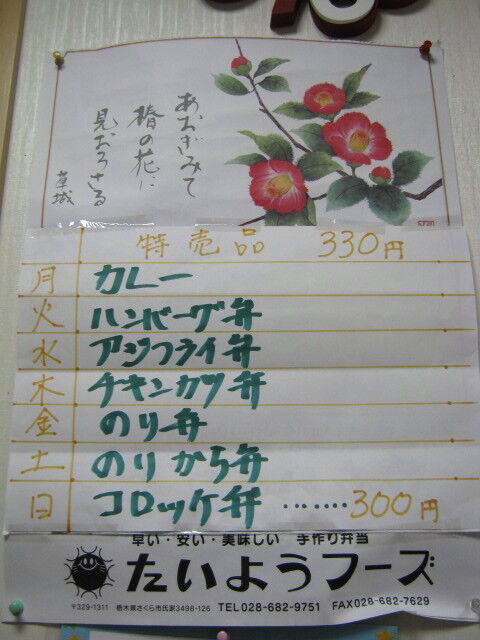 あおぎみて
椿の花に
見おろさる
草城
特売品 330円
月 カレー
火 ハンバーグ弁
水 アジフライ弁
木 チキンカツ弁
金 のり弁
土 のりから弁
日 コロッケ弁 ‥‥‥‥300円
早い・安い・美味しい 手作り弁当
たいようフーズ
〒329-1311 栃木県さくら市氏家3498-126 TEL028-682-9751 FAX028-682-7629